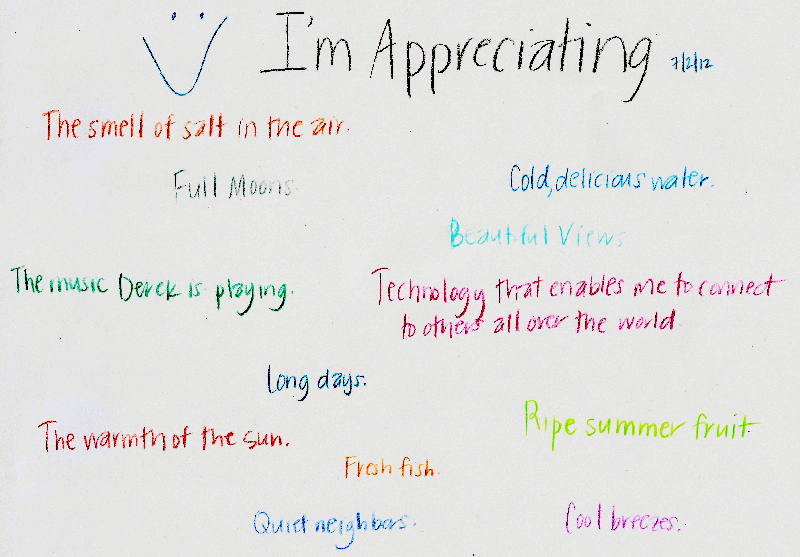 I'm Appreciating 7/2/12
The smell of salt in the air.
Full Moons.
Cold, delicious water.
Beautiful Views
The music Derek is playing.
Technology that enables me to connect
to others all over the world.
Long days.
The warmth of the sun.
Ripe summer fruit.
Fresh fish.
Quiet neighbors.
Cool breezes.